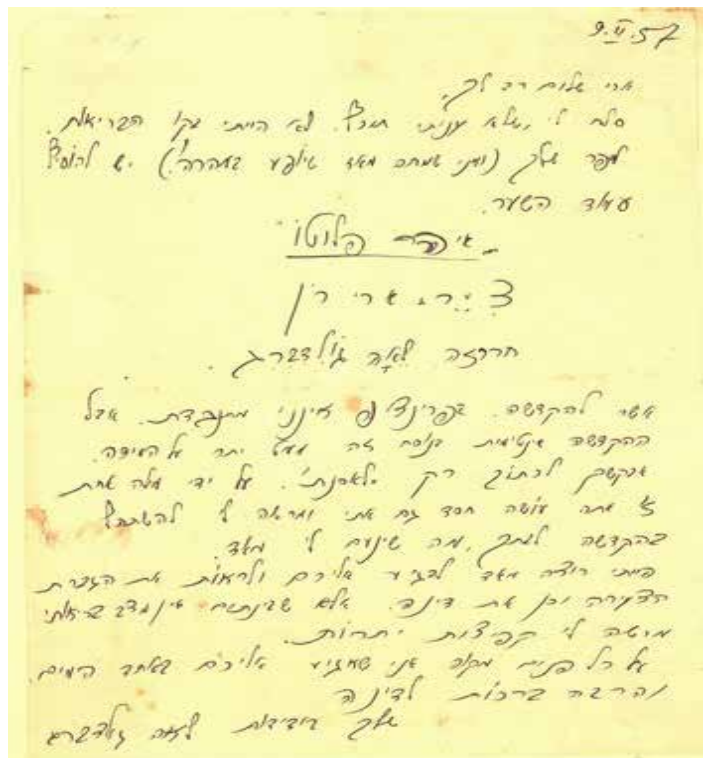 9.VI.57
ארי שלום רב לך,
סלח לי, שלא עניתי תיכף. לא הייתי בקו הבריאות.
לספר שלך (ואני שמחה מאד שיופיע במהרה!) יש להוסיף
עמוד השער.
איה פלוטו
צִיֵּר. ארי רון
חרזה לאָה גוֹלדברג.
אשר להקדשה. בפרינציפ אינני מתנגדת. אבל
ההקדשה שינטימית בנוסח זה מעט יתר על המידה.
אבקשך לכתוב רק "לאסנת". על ידי מלה אחת
זו אתה עושה חסד גם אתי ומרשה לי להשתתף
בהקדשה לבתך, מה שינעם לי מאד.
הייתי רוצה מאד להגיע אליכם ולראות את הגברת
הצעירה וכן את דינה. אלא שבינתיים אין מצב בריאותי
מרשה לי קפיצות יתרות.
על כל פנים מקוה אני שאגיע אליכם באחד הימים
והרבה ברכות לדינה
שלך בידידות לאה גולדברג